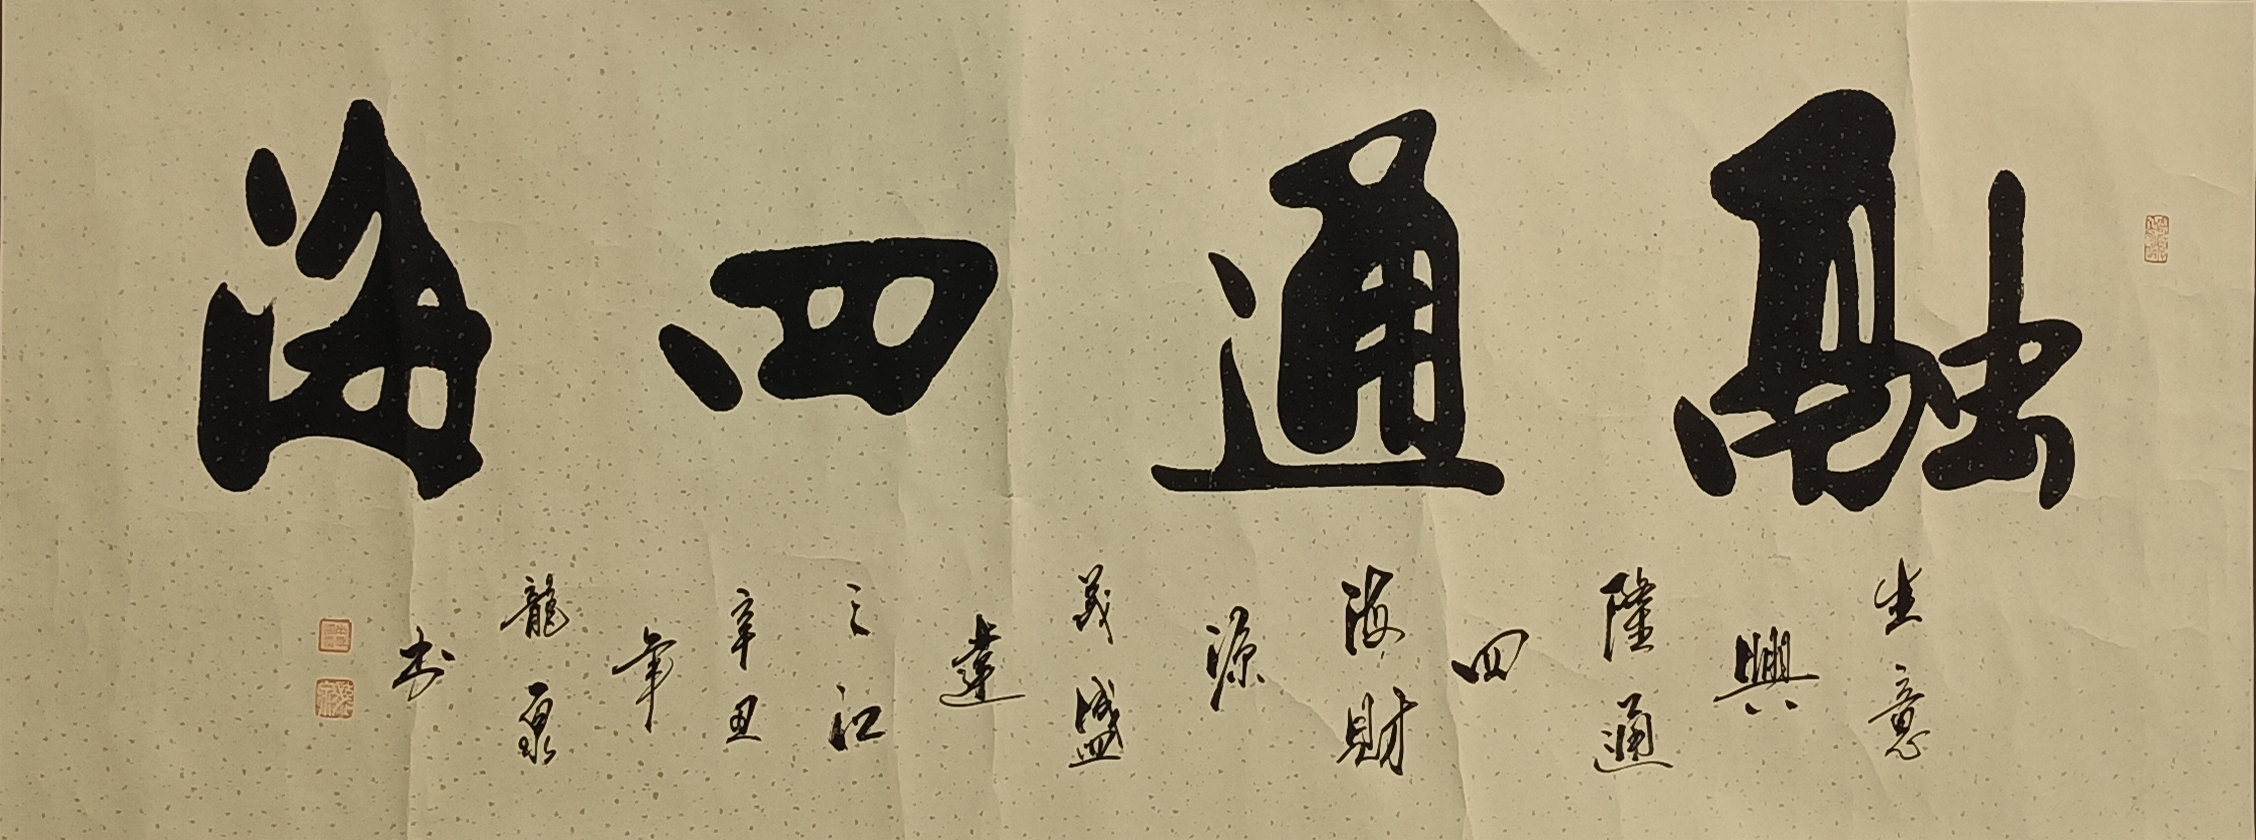 融通四海
生意
興
隆通
四
海財
源
茂盛
達
三江
辛丑
年
龍泉
書